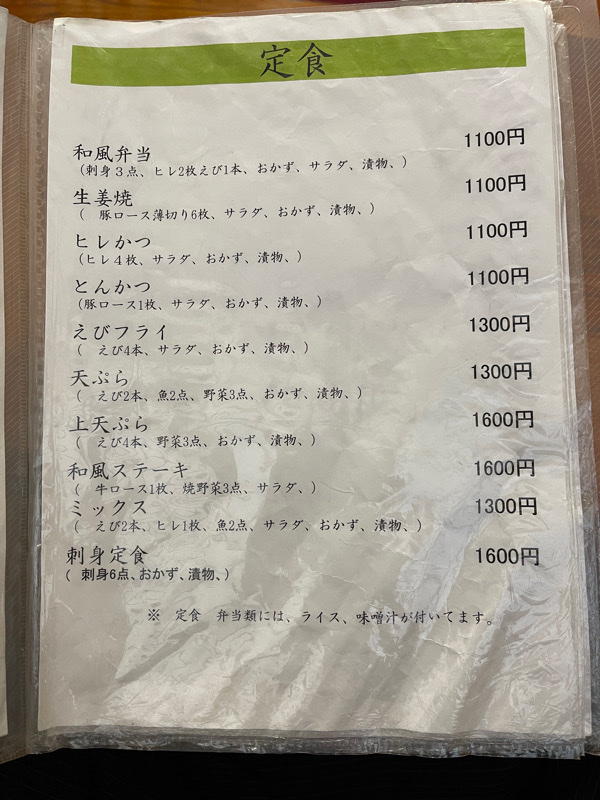 定食
和風弁当 1100円
(刺身３点、ヒレ2枚えび1本、おかず、サラダ、漬物、)
生姜焼 1100円
( 豚ロース薄切り6枚、サラダ、おかず、漬物、)
ヒレかつ 1100円
(ヒレ４枚、サラダ、おかず、漬物、)
とんかつ 1100円
(豚ロース1枚、サラダ、おかず、漬物、)
えびフライ 1300円
( えび4本、サラダ、おかず、漬物、)
天ぷら 1300円
( えび2本、魚2点、野菜3点、おかず、漬物、)
上天ぷら 1600円
( えび4本、野菜3点、おかず、漬物、)
和風ステーキ 1600円
( 牛ロース1枚、焼野菜3点、サラダ、)
ミックス 1300円
( えび2本、ヒレ1枚、魚2点、サラダ、おかず、漬物、)
刺身定食 1600円
( 刺身6点、おかず、漬物、)
※ 定食 弁当類には、ライス、味噌汁が付いてます。